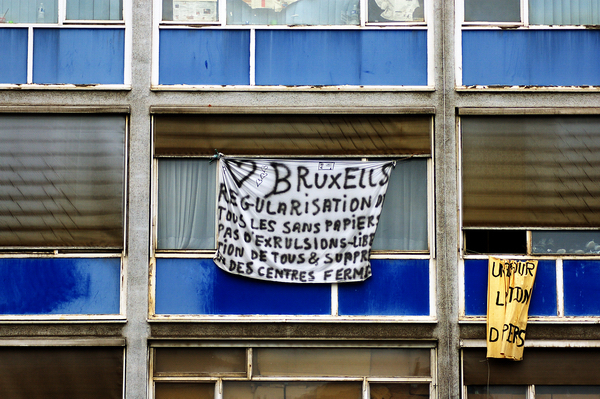 BRUXELLS
REGULARISATION D
TOUS LES SANS PAPIERS
PAS D'EXPULSIONS-LIBE
TION DE TOUS & SUPPR
DES CENTRES FERME
UN OUR
L TION
D P ERS